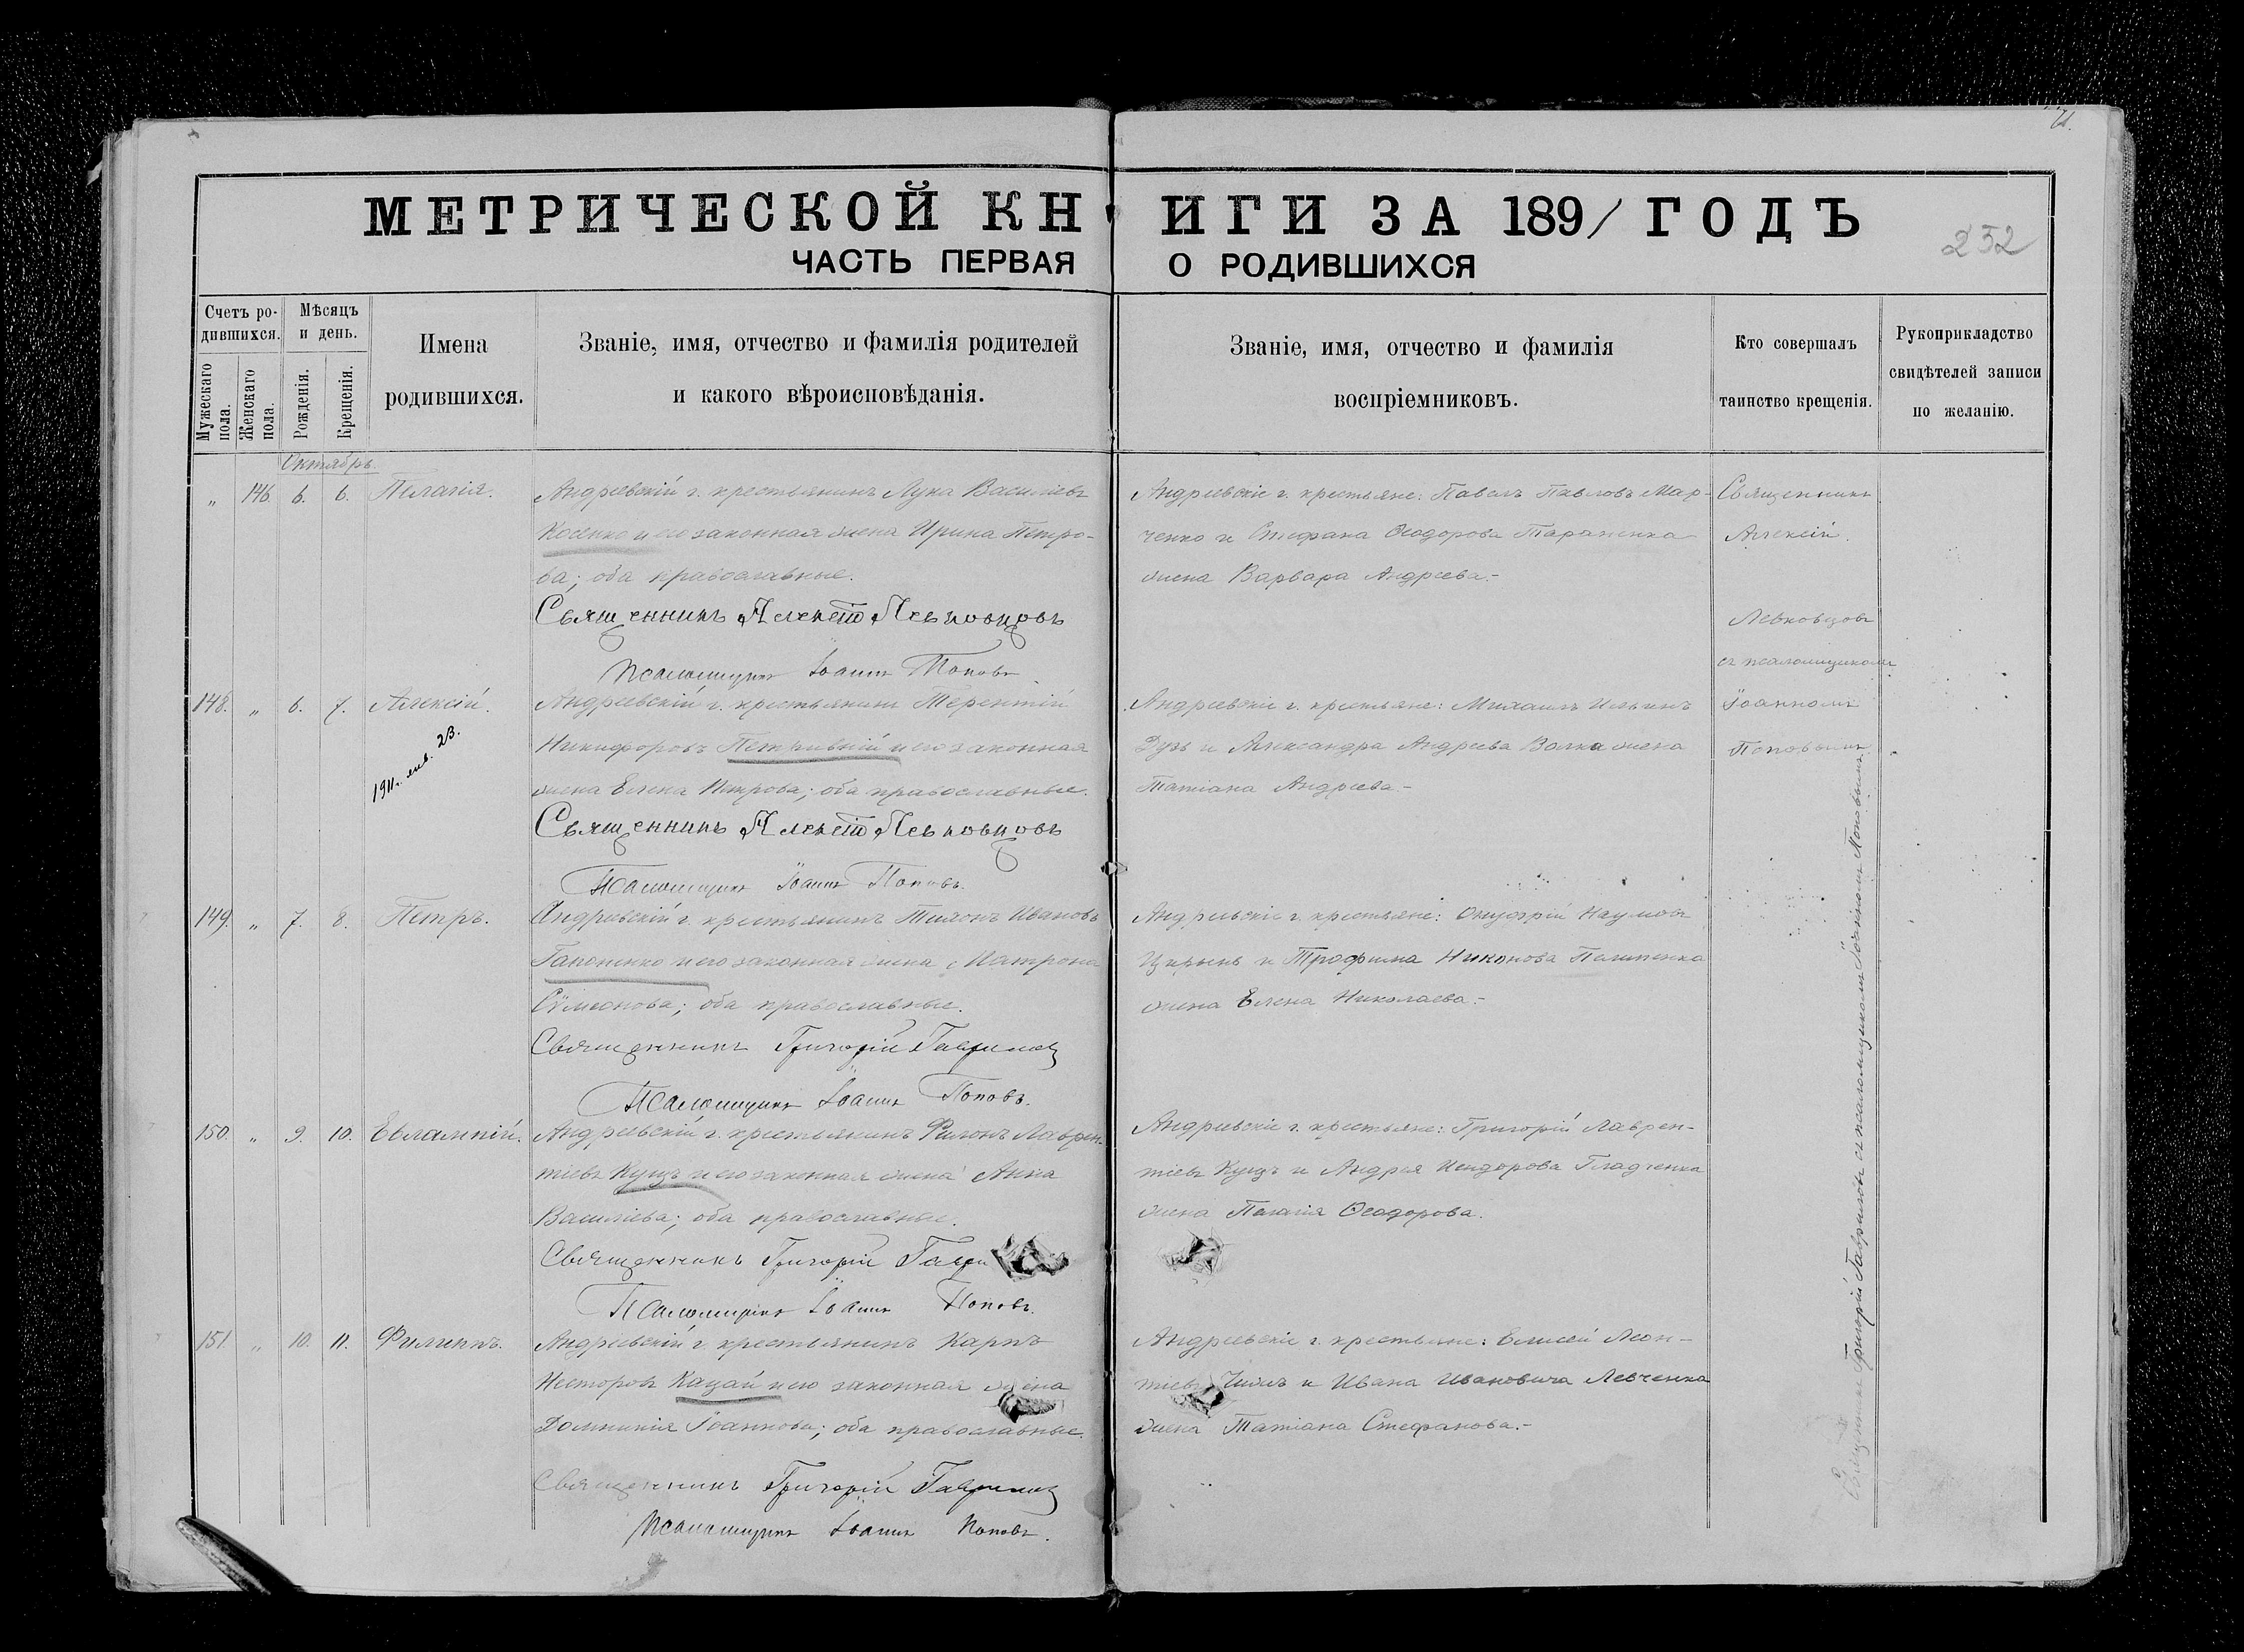 21.
МЕТРИЧЕСКОЙ КНИГИ ЗА 1891 ГОДЪ
ЧАСТЬ ПЕРВАЯ О РОДИВШИХСЯ
252
Счетъ родившихся.
Мужескаго пола.
Женскаго пола.
Мѣсяцъ и день.
Рожденія.
Крещенія.
Имена
родившихся.
Званіе, имя, отчество и фамилія родителей
и какого вѣроисповѣданія.
Званіе, имя, отчество и фамилія
воспріемниковъ.
Кто совершалъ
таинство крещенія.
Рукоприкладство
свидѣтелей записи
по желанію.
Октябрь
" 146. 6. 6. Пелагія.
Андреевскій г. крестьянинъ Лука Василіевъ
Косенко и его законная жена Ирина Петро-
ва; оба православные.
Священникъ Алексѣй Левковцовъ
Псаломщикъ Іоаннъ Поповъ
Андреевскіе г. крестьяне: Павелъ Павловъ Мар-
ченко и Стефана Ѳеодорова Тараненка
жена Варвара Андреева.-
Священникъ
Алексій
Левковцовъ
съ псаломщикомъ
Іоанномъ
Поповымъ
148. " 6. 7. Алексій.
1911. янв. 23.
Андреевскій г. крестьянинъ Терентій
Никифоровъ и его законная
жена Елена Петрова; оба православные.
Священникъ Алексѣй Левковцовъ
Псаломщикъ Іоаннъ Поповъ.
Андреевскіе г. крестьяне: Михаилъ Ильинъ
Дузь и Александра Андреева Волка жена
Татіана Андреева.-
149. " 7. 8. Петръ.
Андреевскій г. крестьянинъ Тихонъ Ивановъ
Гапоненко и его законная жена Матрона
Сѵмеонова; оба православные.
Священникъ Григорій Гавриловъ
Псаломщикъ Іоаннъ Поповъ.
Андреевскіе г. крестьяне: Онуфрій Наумовъ
и Трофима Никонова Пилипенка
жена Елена Николаева.-
150. " 9. 10. Евлампій.
Андреевскій г. крестьянинъ Филонъ Лаврен-
тіевъ Куцъ и его законная жена Анна
Василіева; оба православные.
Священникъ Григорій Гаври
Псаломщикъ Іоаннъ Поповъ.
Андреевскіе г. крестьяне: Григорій Лаврен-
тіевъ Куцъ и Андрея Исидорова Гладченка
жена Пелагія Ѳеодорова.
151. " 10. 11. Филиппъ.
Андреевскій г. крестьянинъ Карпъ
Несторовъ Кацай и его законная жена
Домникія Іоаннова; оба православные.
Священникъ Григорій Гавриловъ
Псаломщикъ Іоаннъ Поповъ.
Андреевскіе г. крестьяне: Елисей Леон-
тіевъ и Ивана Ивановича Левченка
жена Татіана Стефанова.-
Священникъ Григорій Гавриловъ съ псаломщикомъ Іоанномъ Поповымъ.